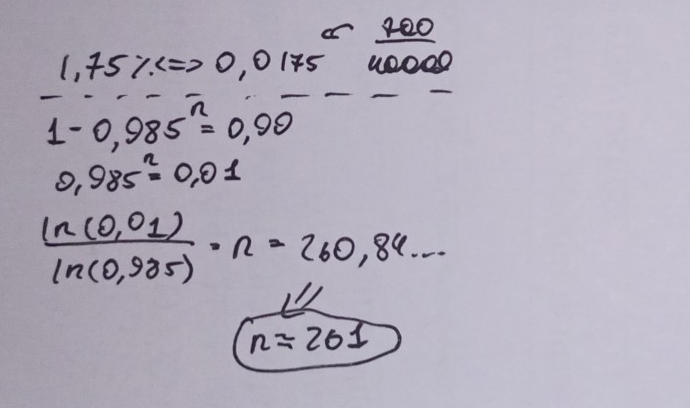 1,75% <=> 0,0175 ∞ 700
40000
1 - 0,985^n = 0,99
0,985^n = 0,01
ln(0,01)
ln(0,985) = n = 260,84....
n = 261